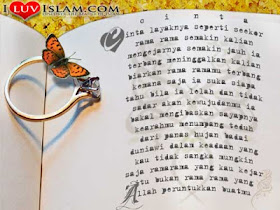 I LUV ISLAM.COM
c i n t a
Cinta layaknya seperti seekor
rama rama semakin kalian
mengejarnya semakin jauh ia
terbang meninggalkan kalian
biarkan rama ramamu terbang
kemana saja ia suka siapa
tahu bila ia lelah dan tidak
sadar akan kewujudanmu ia
bakal mengepakkan sayapnya
kearahmu menumpang teduh
dari panas hujan badai
duniawi dalam keadaan yang
kau tidak sangka mungkin
saja ramarama yang kau kejar
itu bukan rama rama yang
Allah peruntukkan buatmu